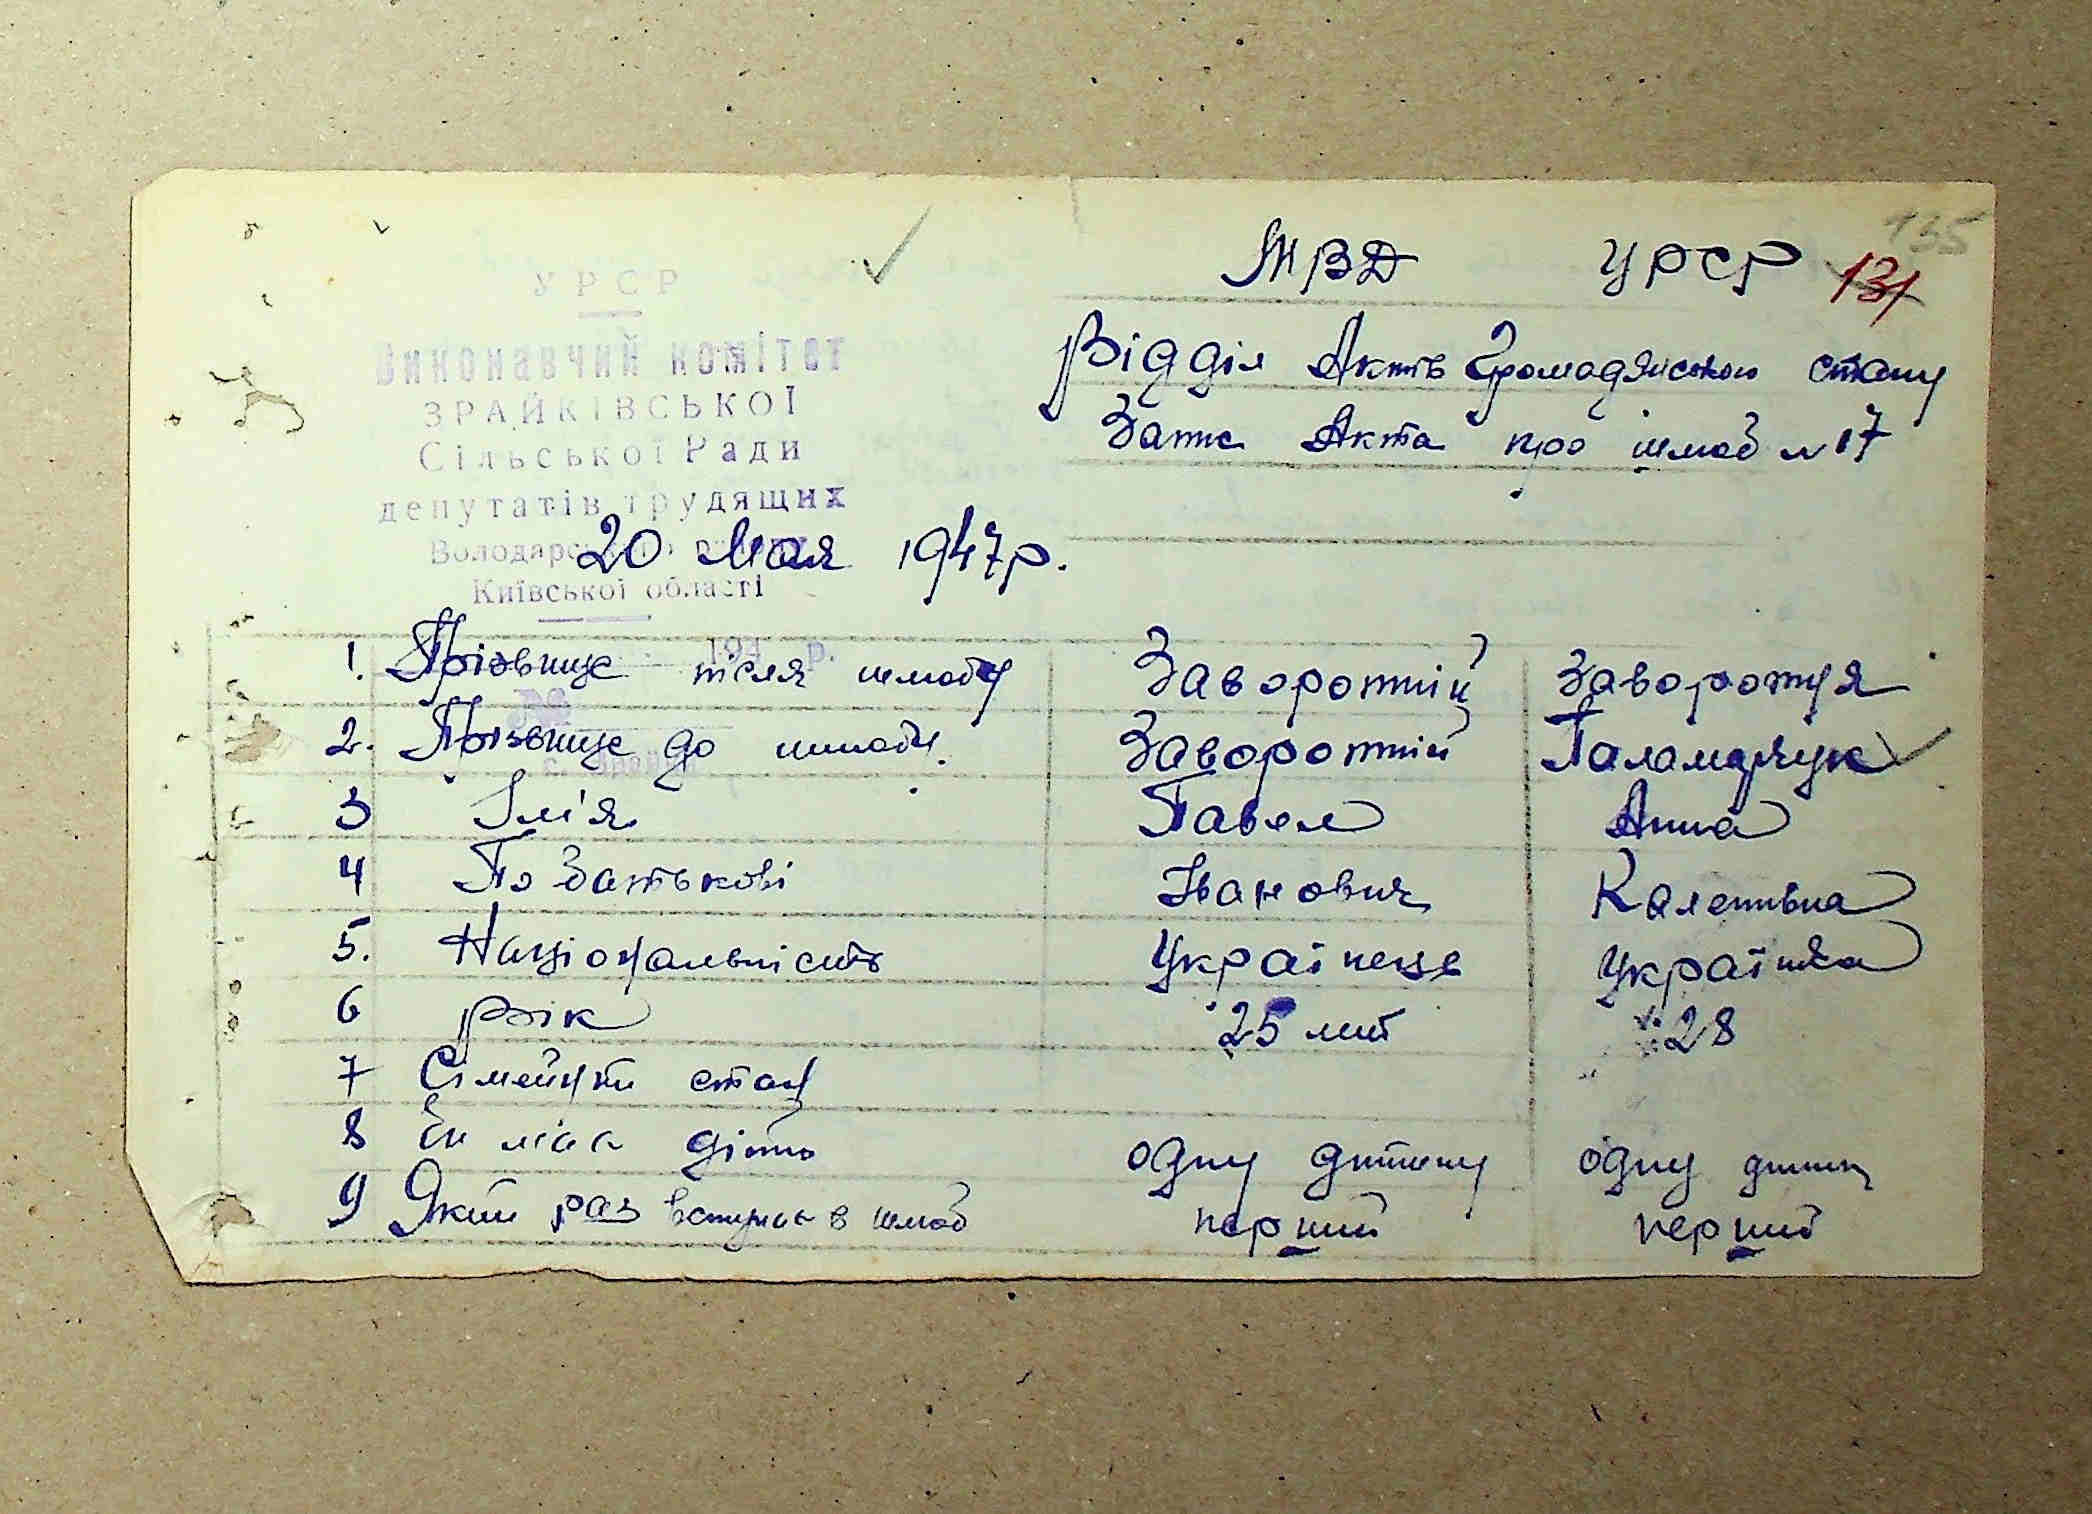 135
МВД УРСР 131
УРСР
Виконавчий комітет
ЗРАЙКІВСЬКОЇ
Сільської Ради
депутатів трудящих
Київської області
194 р.
№
Відділ Актів Громадянського стану
Запис Акта про шлюб № 17
20 Мая 1947р.
1. Прізвище після шлюбу Заворотній Заворотня
2. Прізвище до шлюбу. Заворотній Паламарчук
3 Ім'я Павел Анна
4 По батькові Іванович Калетівна
5. Національність Українець Українка
6 рік 25 лит 28
7 Сімейний стан
8 Чи має діти одну дитину одну дитину
9 Який раз вступив в шлюб перший перший